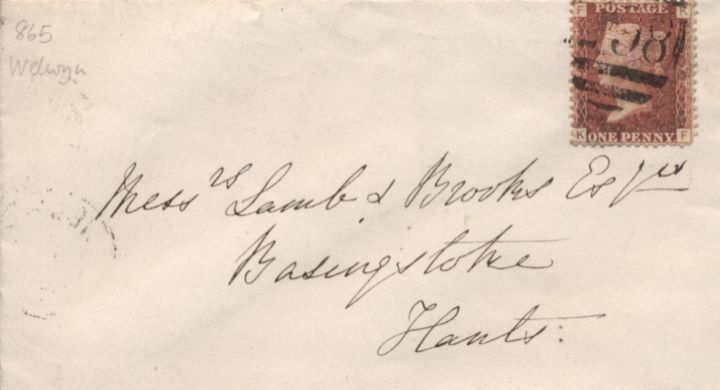 865
Welwyn
F POSTAGE K
98
K ONE PENNY F
Messrs Lamb & Brooks Esqrs
Basingstoke
Hants: